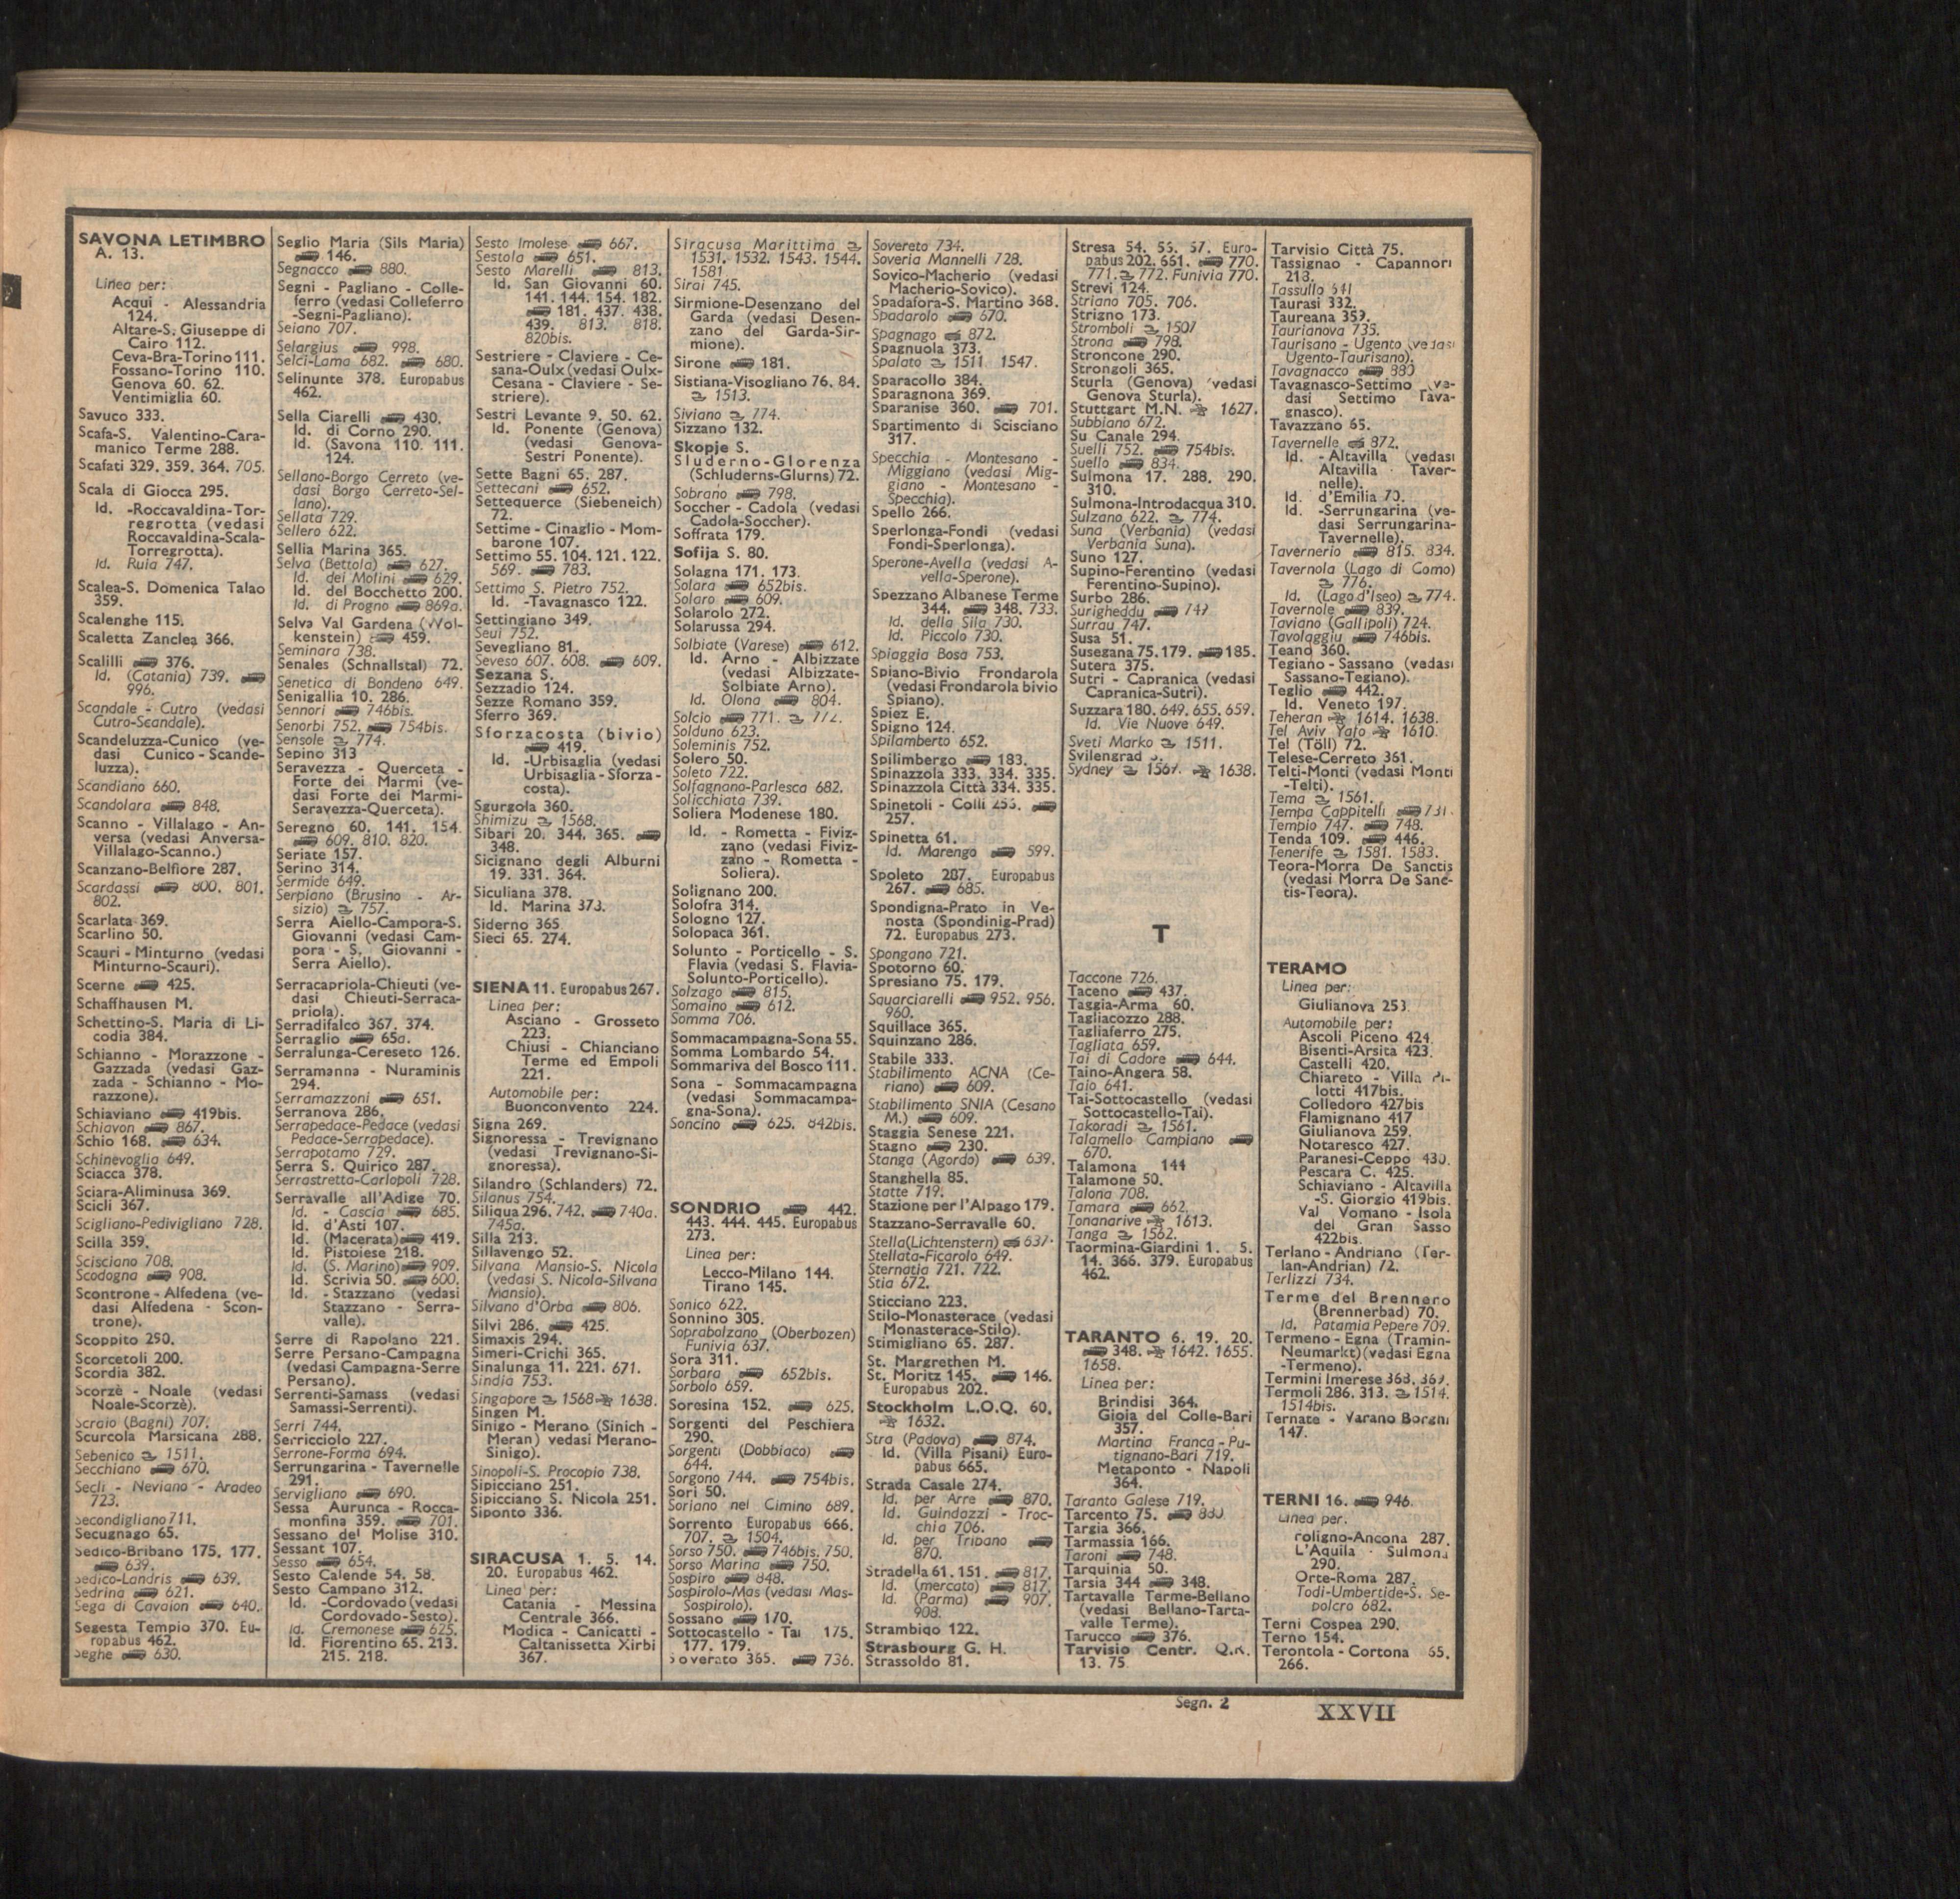 SAVONA LETIMBRO
A. 13.
Linea per:
Acqui - Alessandria
124.
Altare-S. Giuseppe di
Cairo 112.
Ceva-Bra-Torino 111.
Fossano-Torino 110.
Genova 60. 62.
Ventimiglia 60.
Savuco 333.
Scafa-S. Valentino-Cara-
manico Terme 288.
Scafati 329. 359. 364. 705.
Scala di Giocca 295.
Id. -Roccavaldina-Tor-
regrotta (vedasi
Roccavaldina-Scala-
Torregrotta).
Id. Ruia 747.
Scalea-S. Domenica Talao
359.
Scalenghe 115.
Scaletta Zanclea 366.
Scalilli 376.
Id. (Catania) 739.
996.
Scandale - Cutro (vedasi
Cutro-Scandale).
Scandeluzza-Cunico (ve-
dasi Cunico - Scande-
luzza).
Scandiano 660.
Scandolara 848.
Scanno - Villalago - An-
versa (vedasi Anversa-
Villalago-Scanno.)
Scanzano-Belfiore 287.
Scardassi 800. 801.
802.
Scarlata 369.
Scarlino 50.
Scauri - Minturno (vedasi
Minturno-Scauri).
Scerne 425.
Schaffhausen M.
Schettino-S. Maria di Li-
codia 384.
Schianno - Morazzone -
Gazzada (vedasi Gaz-
zada - Schianno - Mo-
razzone).
Schiaviano 419bis.
Schiavon 867.
Schio 168. 634.
Schinevoglia 649.
Sciacca 378.
Sciara-Aliminusa 369.
Scicli 367.
Scigliano-Pedivigliano 728.
Scilla 359.
Scisciano 708.
Scodogna 908.
Scontrone - Alfedena (ve-
dasi Alfedena - Scon-
trone).
Scoppito 290.
Scorcetoli 200.
Scordia 382.
Scorzè - Noale (vedasi
Noale-Scorzè).
Scraio (Bagni) 707.
Scurcola Marsicana 288.
Sebenico 1511.
Secchiano 670.
Seclì - Neviano - Aradeo
723.
Secondigliano 711.
Secugnago 65.
Sedico-Bribano 175. 177.
639.
Sedico-Landris 639.
Sedrina 621.
Sega di Cavaion 640.
Segesta Tempio 370. Eu-
ropabus 462.
Seghe 630.
Seglio Maria (Sils Maria)
146.
Segnacco 880.
Segni - Pagliano - Colle-
ferro (vedasi Colleferro
-Segni-Pagliano).
Seiano 707.
Selargius 998.
Selci-Lama 682. 680.
Selinunte 378. Europabus
462.
Sella Ciarelli 430.
Id. di Corno 290.
Id. (Savona 110. 111.
124.
Sellano-Borgo Cerreto (ve-
dasi Borgo Cerreto-Sel-
lano).
Sellata 729.
Sellero 622.
Sellia Marina 365.
Selva (Bettola) 627.
Id. dei Molini 629.
Id. del Bocchetto 200.
Id. di Progno 869a.
Selva Val Gardena (Wol-
kenstein) 459.
Seminara 738.
Senales (Schnallstal) 72.
Senetica di Bondeno 649.
Senigallia 10. 286.
Sennori 746bis.
Senorbì 752. 754bis.
Sensole 774.
Sepino 313
Seravezza - Querceta -
Forte dei Marmi (ve-
dasi Forte dei Marmi-
Seravezza-Querceta).
Seregno 60. 141. 154.
609. 810. 820.
Seriate 157.
Serino 314.
Sermide 649.
Serpiano (Brusino - Ar-
sizio) 757.
Serra Aiello-Campora-S.
Giovanni (vedasi Cam-
pora - S. Giovanni -
Serra Aiello).
Serracapriola-Chieuti (ve-
dasi Chieuti-Serraca-
priola).
Serradifalco 367. 374.
Serraglio 65a.
Serralunga-Cereseto 126.
Serramanna - Nuraminis
294.
Serramazzoni 651.
Serranova 286.
Serrapedace-Pedace (vedasi
Pedace-Serrapedace).
Serrapotamo 729.
Serra S. Quirico 287.
Serrastretta-Carlopoli 728.
Serravalle all'Adige 70.
Id. - Cascia 685.
Id. d'Asti 107.
Id. (Macerata) 419.
Id. Pistoiese 218.
Id. (S. Marino) 909.
Id. Scrivia 50. 600.
Id. - Stazzano (vedasi
Stazzano - Serra-
valle).
Serre di Rapolano 221.
Serre Persano-Campagna
(vedasi Campagna-Serre
Persano).
Serrenti-Samass (vedasi
Samassi-Serrenti).
Serri 744.
Serricciolo 227.
Serrone-Forma 694.
Serrungarina - Tavernelle
291.
Servigliano 690.
Sessa Aurunca - Rocca-
monfina 359. 701.
Sessano del Molise 310.
Sessant 107.
Sesso 654.
Sesto Calende 54. 58.
Sesto Campano 312.
Id. -Cordovado (vedasi
Cordovado-Sesto).
Id. Cremonese 625.
Id. Fiorentino 65. 213.
215. 218.
Sesto Imolese 667.
Sestola 651.
Sesto Marelli 813.
Id. San Giovanni 60.
141. 144. 154. 182.
181. 437. 438.
439. 813. 818.
820bis.
Sestriere - Claviere - Ce-
sana-Oulx (vedasi Oulx-
Cesana - Claviere - Se-
striere).
Sestri Levante 9. 50. 62.
Id. Ponente (Genova)
(vedasi Genova-
Sestri Ponente).
Sette Bagni 65. 287.
Settecani 652.
Settequerce (Siebeneich)
72.
Settime - Cinaglio - Mom-
barone 107.
Settimo 55. 104. 121. 122.
569. 783.
Settimo S. Pietro 752.
Id. -Tavagnasco 122.
Settingiano 349.
Seui 752.
Sevegliano 81.
Seveso 607. 608. 609.
Sezana S.
Sezzadio 124.
Sezze Romano 359.
Sferro 369.
Sforzacosta (bivio)
419.
Id. -Urbisaglia (vedasi
Urbisaglia - Sforza-
costa).
Sgurgola 360.
Shimizu 1568.
Sibari 20. 344. 365.
348.
Sicignano degli Alburni
19. 331. 364.
Siculiana 378.
Id. Marina 373.
Siderno 365
Sieci 65. 274.
SIENA 11. Europabus 267.
Linea per:
Asciano - Grosseto
223.
Chiusi - Chianciano
Terme ed Empoli
221.
Automobile per:
Buonconvento 224.
Signa 269.
Signoressa - Trevignano
(vedasi Trevignano-Si-
gnoressa).
Silandro (Schlanders) 72.
Silanus 754.
Siliqua 296. 742. 740a.
745a.
Silla 213.
Sillavengo 52.
Silvana Mansio-S. Nicola
(vedasi S. Nicola-Silvana
Mansio).
Silvano d'Orba 806.
Silvi 286. 425.
Simaxis 294.
Simeri-Crichi 365.
Sinalunga 11. 221. 671.
Sindia 753.
Singapore 1568 1638.
Singen M.
Sinigo - Merano (Sinich -
Meran) vedasi Merano-
Sinigo).
Sinopoli-S. Procopio 738.
Sipicciano 251.
Sipicciano S. Nicola 251.
Siponto 336.
SIRACUSA 1. 5. 14.
20. Europabus 462.
Linea per:
Catania - Messina
Centrale 366.
Modica - Canicatti -
Caltanissetta Xirbi
367.
Siracusa Marittima
1531. 1532. 1543. 1544.
1581
Sirai 745.
Sirmione-Desenzano del
Garda (vedasi Desen-
zano del Garda-Sir-
mione).
Sirone 181.
Sistiana-Visogliano 76. 84.
1513.
Siviano 774.
Sizzano 132.
Skopje S.
Sluderno-Glorenza
(Schluderns-Glurns) 72.
Sobrano 798.
Soccher - Cadola (vedasi
Cadola-Soccher).
Soffrata 179.
Sofija S. 80.
Solagna 171. 173.
Solara 652bis.
Solaro 609.
Solarolo 272.
Solarussa 294.
Solbiate (Varese) 612.
Id. Arno - Albizzate
(vedasi Albizzate-
Solbiate Arno).
Id. Olona 804.
Solcio 771. 772.
Solduno 623.
Soleminis 752.
Solero 50.
Soleto 722.
Solfagnano-Parlesca 682.
Solicchiata 739.
Soliera Modenese 180.
Id. - Rometta - Fiviz-
zano (vedasi Fiviz-
zano - Rometta -
Soliera).
Solignano 200.
Solofra 314.
Sologno 127.
Solopaca 361.
Solunto - Porticello - S.
Flavia (vedasi S. Flavia-
Solunto-Porticello).
Solzago 815.
Somaino 612.
Somma 706.
Sommacampagna-Sona 55.
Somma Lombardo 54.
Sommariva del Bosco 111.
Sona - Sommacampagna
(vedasi Sommacampa-
gna-Sona).
Soncino 625. 842bis.
SONDRIO 442.
443. 444. 445. Europabus
273.
Linea per:
Lecco-Milano 144.
Tirano 145.
Sonico 622.
Sonnino 305.
Soprabolzano (Oberbozen)
Funivia 637.
Sora 311.
Sorbara 652bis.
Sorbolo 659.
Soresina 152. 625.
Sorgenti del Peschiera
290.
Sorgenti (Dobbiaco)
644.
Sorgono 744. 754bis.
Sori 50.
Soriano nel Cimino 689.
Sorrento Europabus 666.
707. 1504.
Sorso 750. 746bis. 750.
Sorso Marina 750.
Sospiro 848.
Sospirolo-Mas (vedasi Mas-
Sospirolo).
Sossano 170.
Sottocastello - Tai 175.
177. 179.
Soverato 365. 736.
Sovereto 734.
Soveria Mannelli 728.
Sovico-Macherio (vedasi
Macherio-Sovico).
Spadafora-S. Martino 368.
Spadarolo 670.
Spagnago 872.
Spagnuola 373.
Spalato 1511 1547.
Sparacollo 384.
Sparagnona 369.
Sparanise 360. 701.
Spartimento di Scisciano
317.
Specchia - Montesano -
Miggiano (vedasi Mig-
giano - Montesano -
Specchia).
Spello 266.
Sperlonga-Fondi (vedasi
Fondi-Sperlonga).
Sperone-Avella (vedasi A-
vella-Sperone).
Spezzano Albanese Terme
344. 348. 733.
Id. della Sila 730.
Id. Piccolo 730.
Spiaggia Bosa 753.
Spiano-Bivio Frondarola
(vedasi Frondarola bivio
Spiano).
Spiez E.
Spigno 124.
Spilamberto 652.
Spilimbergo 183.
Spinazzola 333. 334. 335.
Spinazzola Città 334. 335.
Spinetoli - Colli 255.
257.
Spinetta 61.
Id. Marengo 599.
Spoleto 287. Europabus
267. 685.
Spondigna-Prato in Ve-
nosta (Spondinig-Prad)
72. Europabus 273.
Spongano 721.
Spotorno 60.
Spresiano 75. 179.
Squarciarelli 952. 956.
960.
Squillace 365.
Squinzano 286.
Stabile 333.
Stabilimento ACNA (Ce-
riano) 609.
Stabilimento SNIA (Cesano
M.) 609.
Staggia Senese 221.
Stagno 230.
Stanga (Agordo) 639.
Stanghella 85.
Statte 719.
Stazione per l'Alpago 179.
Stazzano-Serravalle 60.
Stella (Lichtenstern) 637.
Stellata-Ficarolo 649.
Sternatia 721. 722.
Stia 672.
Sticciano 223.
Stilo-Monasterace (vedasi
Monasterace-Stilo).
Stimigliano 65. 287.
St. Margrethen M.
St. Moritz 145. 146.
Europabus 202.
Stockholm L.O.Q. 60.
1632.
Stra (Padova) 874.
Id. (Villa Pisani) Euro-
pabus 665.
Strada Casale 274.
Id. per Arre 870.
Id. Guindazzi - Troc-
chia 706.
Id. per Tribano
870.
Stradella 61. 151. 817.
Id. (mercato) 817.
Id. (Parma) 907.
908.
Strambiqo 122.
Strasbourg G. H.
Strassoldo 81.
Stresa 54. 55. 57. Euro-
pabus 202. 661. 770.
771. 772. Funivia 770.
Strevi 124.
Striano 705. 706.
Strigno 173.
Stromboli 1507
Strona 798.
Stroncone 290.
Strongoli 365.
Sturla (Genova) (vedasi
Genova Sturla).
Stuttgart M.N. 1627.
Subbiano 672.
Su Canale 294.
Suelli 752. 754bis.
Suello 834.
Sulmona 17. 288. 290.
310.
Sulmona-Introdacqua 310.
Sulzano 622. 774.
Suna (Verbania) (vedasi
Verbania Suna).
Suno 127.
Supino-Ferentino (vedasi
Ferentino-Supino).
Surbo 286.
Surigheddu 747
Surrau 747.
Susa 51.
Susegana 75. 179. 185.
Sutera 375.
Sutri - Capranica (vedasi
Capranica-Sutri).
Suzzara 180. 649. 655. 659.
Id. Vie Nuove 649.
Sveti Marko 1511.
Svilengrad
Sydney 1567. 1638.
T
Taccone 726.
Taceno 437.
Taggia-Arma 60.
Tagliacozzo 288.
Tagliaferro 275.
Tagliata 659.
Tai di Cadore 644.
Taino-Angera 58.
Taio 641.
Tai-Sottocastello (vedasi
Sottocastello-Tai).
Takoradi 1561.
Talamello Campiano
670.
Talamona 144
Talamone 50.
Talona 708.
Tamara 662.
Tananarive 1613.
Tanga 1562.
Taormina-Giardini 1. 5.
14. 366. 379. Europabus
462.
TARANTO 6. 19. 20.
348. 1642. 1655.
1658.
Linea per:
Brindisi 364.
Gioia del Colle-Bari
357.
Martina Franca - Pu-
tignano-Bari 719.
Metaponto - Napoli
364.
Taranto Galese 719.
Tarcento 75. 880
Targia 366.
Tarmassia 166.
Taroni 748.
Tarquinia 50.
Tarsia 344 348.
Tartavalle Terme-Bellano
(vedasi Bellano-Tarta-
valle Terme).
Tarucco 376.
Tarvisio Centr. Q.R.
13. 75
Tarvisio Città 75.
Tassignao - Capannori
213.
Tassullo 641
Taurasi 332.
Taureana 359.
Taurianova 735.
Taurisano - Ugento (vedasi
Ugento-Taurisano).
Tavagnacco 880
Tavagnasco-Settimo (ve-
dasi Settimo Tava-
gnasco).
Tavazzano 65.
Tavernelle 872.
Id. - Altavilla (vedasi
Altavilla - Taver-
nelle).
Id. d'Emilia 70.
Id. -Serrungarina (ve-
dasi Serrungarina-
Tavernelle).
Tavernerio 815. 834.
Tavernola (Lago di Como)
776.
Id. (Lago d'Iseo) 774.
Tavernole 839.
Taviano (Gallipoli) 724.
Tavolaggiu 746bis.
Teano 360.
Tegiano - Sassano (vedasi
Sassano-Tegiano).
Teglio 442.
Id. Veneto 197.
Teheran 1614. 1638.
Tel Aviv Yafo 1610.
Tel (Töll) 72.
Telese-Cerreto 361.
Telti-Monti (vedasi Monti
-Telti).
Tema 1561.
Tempa Cappitelli 731.
Tempio 747. 748.
Tenda 109. 446.
Tenerife 1581. 1583.
Teora-Morra De Sanctis
(vedasi Morra De Sanc-
tis-Teora).
TERAMO
Linea per:
Giulianova 253
Automobile per:
Ascoli Piceno 424.
Bisenti-Arsita 423.
Castelli 420.
Chiareto - Villa Pi-
lotti 417bis.
Colledoro 427bis
Flamignano 417
Giulianova 259.
Notaresco 427.
Paranesi-Ceppo 430.
Pescara C. 425.
Schiaviano - Altavilla
-S. Giorgio 419bis.
Val Vomano - Isola
del Gran Sasso
422bis.
Terlano - Andriano (Ter-
lan-Andrian) 72.
Terlizzi 734.
Terme del Brennero
(Brennerbad) 70.
Id. Patamia Pepere 709.
Termeno - Egna (Tramin-
Neumarkt) (vedasi Egna
-Termeno).
Termini Imerese 368. 369.
Termoli 286. 313. 1514.
1514bis.
Ternate - Varano Borghi
147.
TERNI 16. 946.
Linea per:
Foligno-Ancona 287.
L'Aquila - Sulmona
290.
Orte-Roma 287.
Todi-Umbertide-S. Se-
polcro 682.
Terni Cospea 290.
Terno 154.
Terontola - Cortona 65.
266.
Segn. 2
XXVII